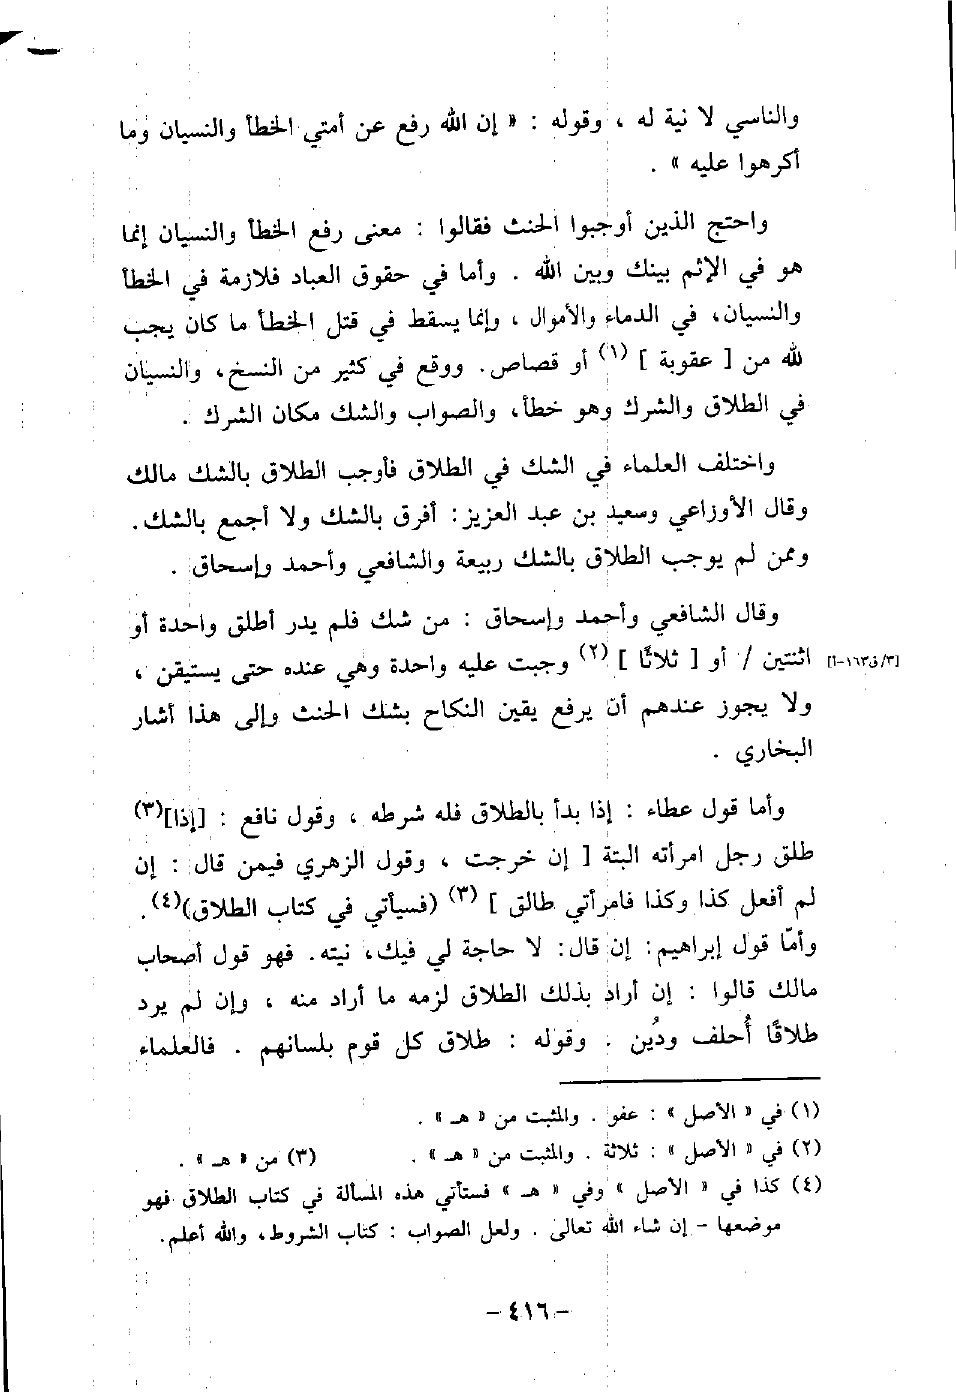 والناسي لا نية له ، وقوله : « إن الله رفع عن أمتي الخطأ والنسيان وما
أكرهوا عليه » .
واحتج الذين أوجبوا الحنث فقالوا : معنى رفع الخطأ والنسيان إنما
هو في الإثم بينك وبين الله . وأما في حقوق العباد فلازمة في الخطأ
والنسيان، في الدماء والأموال ، وإنما يسقط في قتل الخطأ ما كان يجب
لله من [ عقوبة ] (١) أو قصاص. ووقع في كثير من النسخ، والنسيان
في الطلاق والشرك وهو خطأ، والصواب والشك مكان الشرك .
واختلف العلماء في الشك في الطلاق فأوجب الطلاق بالشك مالك
وقال الأوزاعي وسعيد بن عبد العزيز: أفرق بالشك ولا أجمع بالشك.
وممن لم يوجب الطلاق بالشك ربيعة والشافعي وأحمد وإسحاق .
وقال الشافعي وأحمد وإسحاق : من شك فلم يدر أطلق واحدة أو
اثنتين / أو [ ثلاثًا ] (٢) وجبت عليه واحدة وهي عنده حتى يستيقن ، [٣/ق١٦٣-أ]
ولا يجوز عندهم أن يرفع يقين النكاح بشك الحنث وإلى هذا أشار
البخاري .
وأما قول عطاء : إذا بدأ بالطلاق فله شرطه ، وقول نافع : [إذا](٣)
طلق رجل امرأته البتة [ إن خرجت ، وقول الزهري فيمن قال : إن
لم أفعل كذا وكذا فامرأتي طالق ] (٣) (فسيأتي في كتاب الطلاق)(٤).
وأمّا قول إبراهيم: إن قال: لا حاجة لي فيك، نيته. فهو قول أصحاب
مالك قالوا : إن أراد بذلك الطلاق لزمه ما أراد منه ، وإن لم يرد
طلاقًا أُحلف ودُين . وقوله : طلاق كل قوم بلسانهم . فالعلماء
(١) في « الأصل » : عفو . والمثبت من « هـ » .
(٢) في « الأصل » : ثلاثة . والمثبت من « هـ » . (٣) من « هـ » .
(٤) كذا في « الأصل » وفي « هـ » فستأتي هذه المسألة في كتاب الطلاق فهو
موضعها - إن شاء الله تعالى . ولعل الصواب : كتاب الشروط، والله أعلم.
- ٤١٦ -